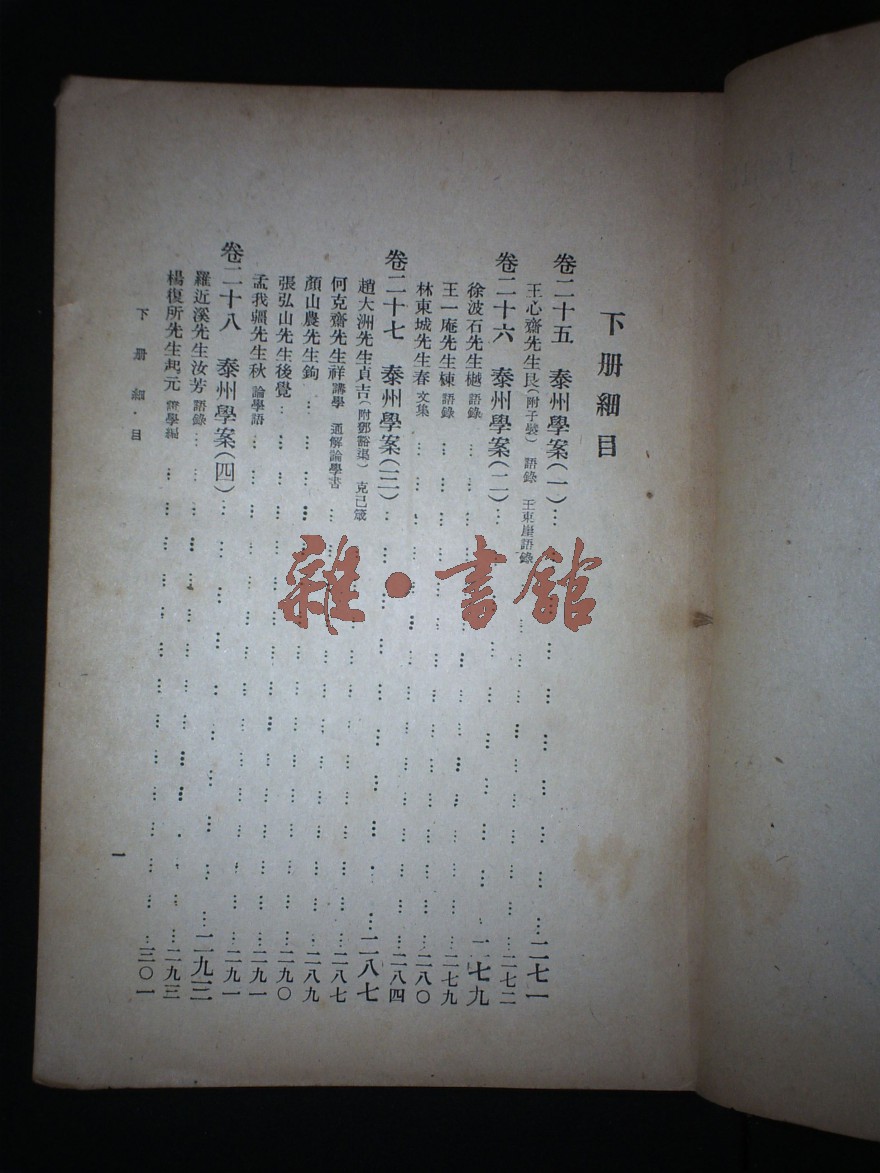 下册細目
卷二十五 泰州學案(一)……二七一
王心齋先生艮(附子襞) 語錄 王東崖語錄……二七二
卷二十六 泰州學案(二)……一七九
徐波石先生樾 語錄……二七九
王一庵先生棟 語錄……二八〇
林東城先生春 文集……二八四
卷二十七 泰州學案(三)……二八七
趙大洲先生貞吉(附鄧豁渠) 克己箴……二八七
何克齋先生祥 講學 通解論學書……二八九
顏山農先生鈞……二九〇
張弘山先生後覺……二九一
孟我疆先生秋 論學語……二九一
卷二十八 泰州學案(四)……二九三
羅近溪先生汝芳 語錄……二九三
楊復所先生起元 證學編……三〇一
下册細目
一
雜·書館